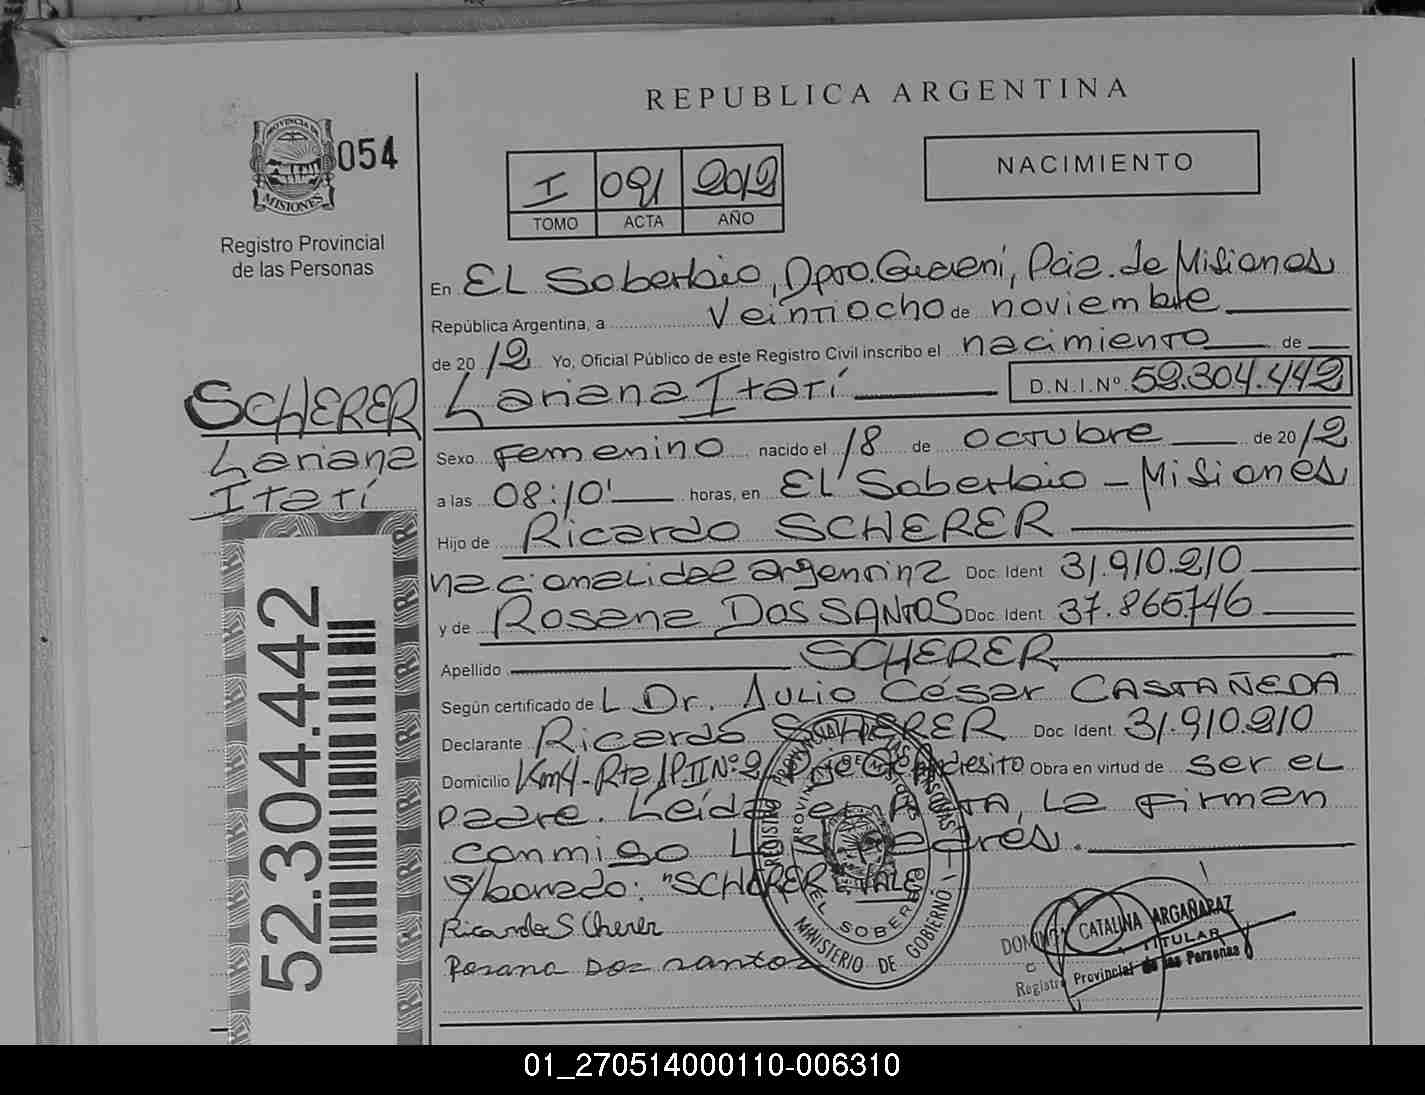 REPUBLICA ARGENTINA
PROVINCIA DE
MISIONES
054
Registro Provincial
de las Personas
I 091 2012
TOMO ACTA AÑO
NACIMIENTO
En EL Soberbio, Dpto. Guaraní, Pcia. de Misiones
República Argentina, a veintiocho de noviembre
de 2012 Yo, Oficial Público de este Registro Civil inscribo el nacimiento de
Lariana Itatí D.N.I.Nº. 52.304.442
SCHERER
Lariana
Itatí
Sexo femenino nacido el 18 de octubre de 2012
a las 08:10' horas, en EL Soberbio - Misiones
Hijo de Ricardo SCHERER
nacionalidad argentina Doc. Ident 31.910.210
y de Rosana DOS SANTOS Doc. Ident. 37.865.746
Apellido SCHERER
Según certificado de L Dr. Julio César CASTAÑEDA
Declarante Ricardo SCHERER Doc. Ident. 31.910.210
Domicilio Km4-Rta JPII Nº2 Obra en virtud de ser el
padre. Leída el ACTA, la firman
conmigo los padres.
S/borrado: "SCHERER". VALE
Ricardo Scherer
Rosana Dos santos
REGISTRO PROVINCIAL DE LAS PERSONAS
PROVINCIA DE MISIONES
EL SOBERBIO
MINISTERIO DE GOBIERNO
CATALINA ARGAÑARAZ
TITULAR
Registro Provincial de las Personas
52.304.442
01_270514000110-006310